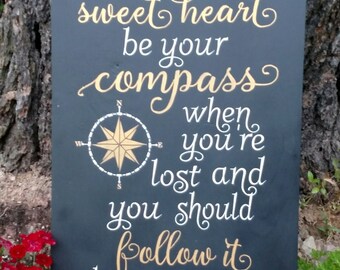 sweet heart
be your
compass
when
you're
lost and
you should
follow it